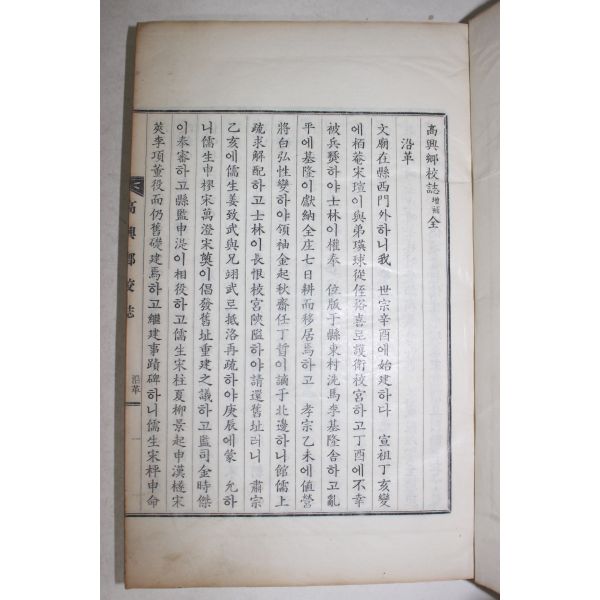 高興鄕校誌 增補 全
沿革
文廟在縣西門外하니我 世宗辛酉에始建하다 宣祖丁亥變
에栢菴宋瑄이與弟瑛球從侄裕喜로護衛校宮하고丁酉에不幸
被兵燹하야士林이權奉 位版于縣東村洗馬李基隆舍하고亂
平에基隆이獻納全庄七日耕而移居焉하고 孝宗乙未에値營
將白弘性變하야領袖金起秋齋任丁晢이謫于北邊하니館儒上
疏求解配하고士林이長恨校宮陜隘하야請還舊址러니 肅宗
乙亥에儒生姜致武與兄翊武로抵洛再疏하야庚辰에蒙 允하
니儒生申檏宋萬澄宋奠이倡發舊址重建之議하고監司金時傑
이奉審하고縣監申湜이相役하고儒生宋柱夏柳景起申漢樣宋
莢李項董役而仍舊礎建焉하고繼建事蹟碑하니儒生宋枰申命
高興鄕校誌
沿革
一